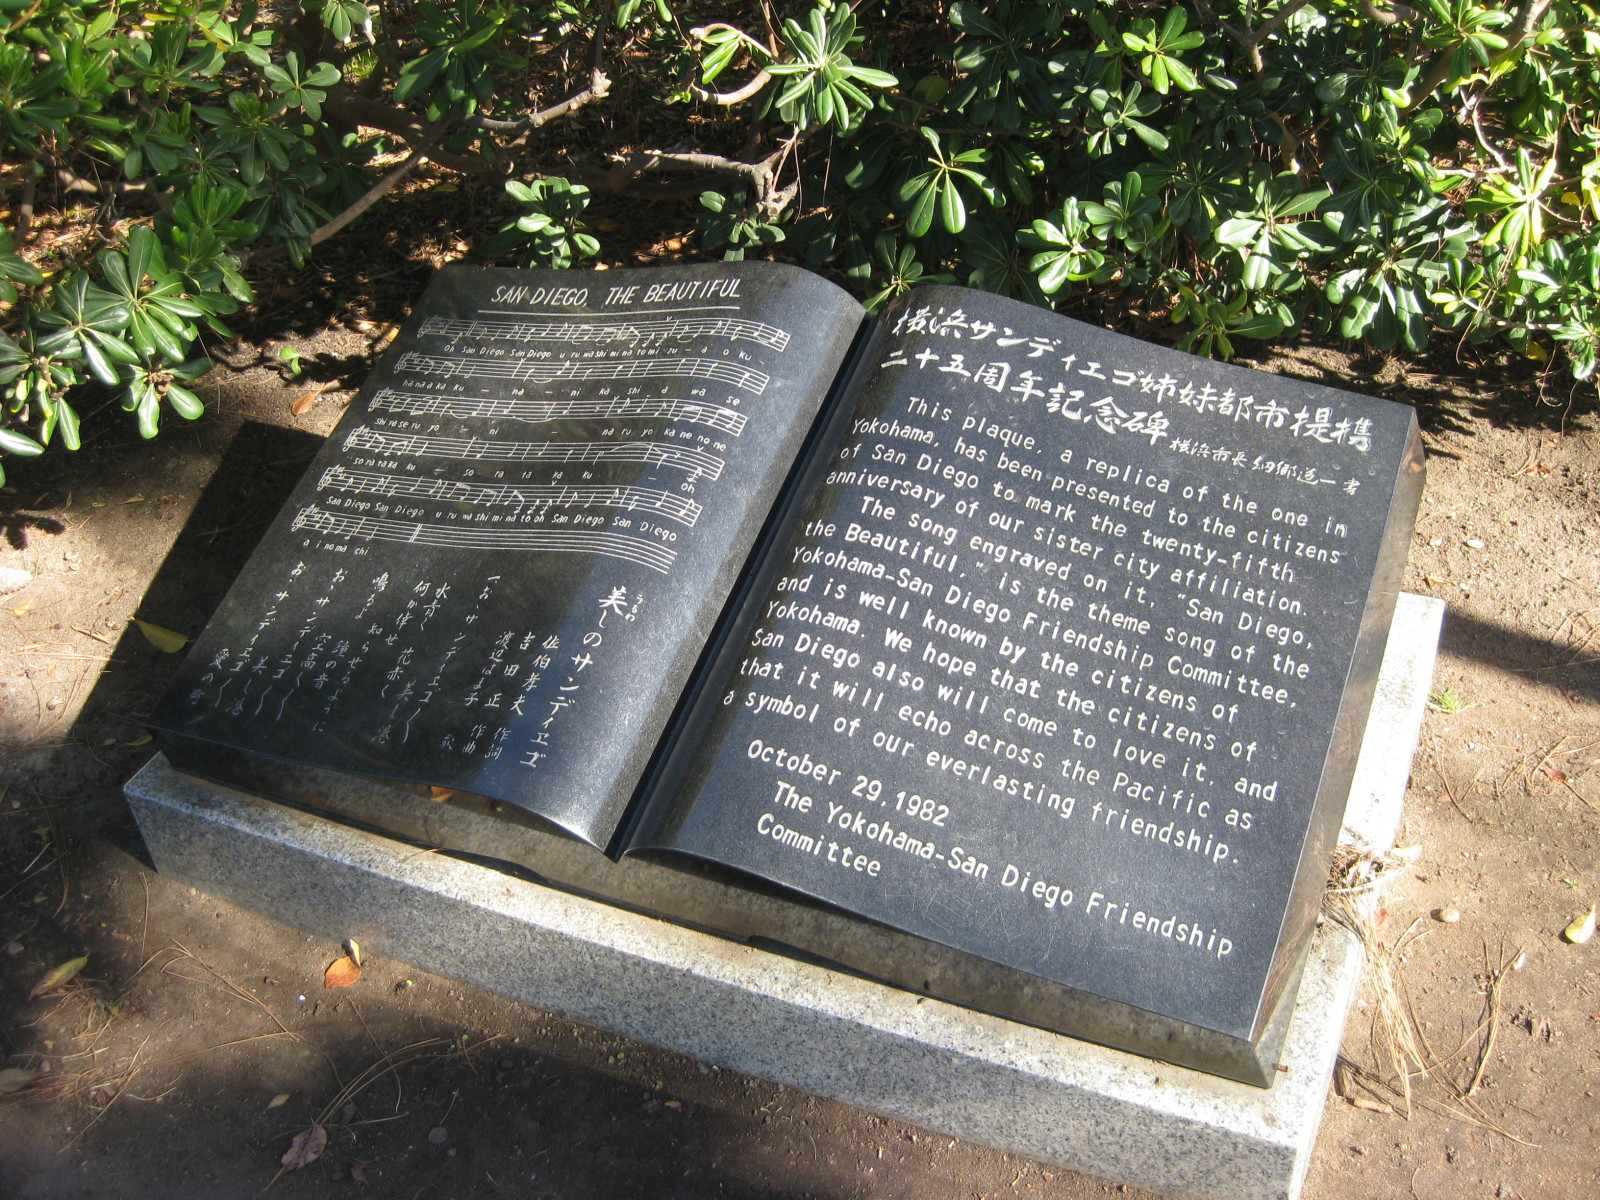 SAN DIEGO, THE BEAUTIFUL
Oh San Diego San Diego u ru wa shi mi na to mi zu - a o ku -
ha na a ka ku - na - ni ka shi a wa se
shi ra se ru yo - ni - na ru yo ka ne no ne
so ra ta ka ku - so ra ta ka ku - oh
San Diego San Diego u ru wa shi mi na to oh San Diego San Diego
a i no ma chi
美しのサンディエゴ
佐伯孝夫 作詞
吉田 正 作曲
渡辺はま子 歌
一、お、サンディエゴ
水青く 花赤く 美し港
何か倖せ
鳴るよ 鐘の音
お、サンディエゴ
愛の町
横浜サンディエゴ姉妹都市提携
二十五周年記念碑
横浜市長 細郷道一 書
This plaque, a replica of the one in
Yokohama, has been presented to the citizens
of San Diego to mark the twenty-fifth
anniversary of our sister city affiliation.
The song engraved on it, "San Diego,
the Beautiful," is the theme song of the
Yokohama-San Diego Friendship Committee,
and is well known by the citizens of
Yokohama. We hope that the citizens of
San Diego also will come to love it, and
that it will echo across the Pacific as
a symbol of our everlasting friendship.
October 29,1982
The Yokohama-San Diego Friendship
Committee